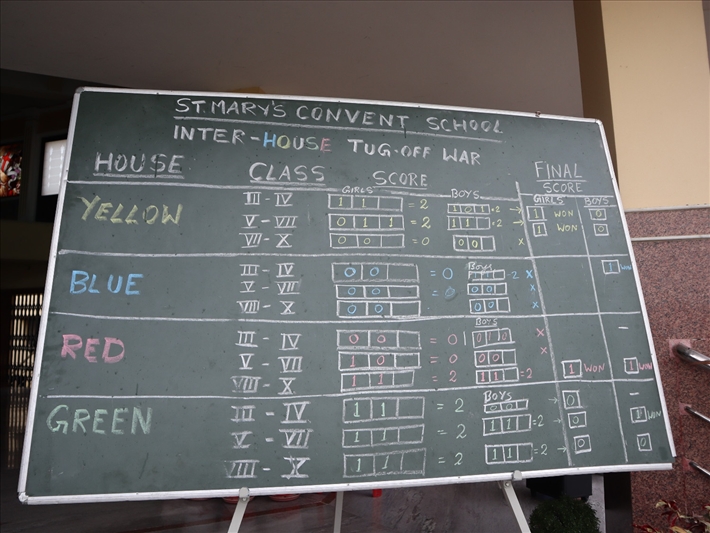 ST. MARY'S CONVENT SCHOOL
INTER-HOUSE TUG-OFF WAR
HOUSE CLASS SCORE FINAL SCORE
GIRLS BOYS GIRLS BOYS
YELLOW III - IV 1 1 = 2 1 0 1 = 2 → 1 WON 0
V - VII 0 1 1 = 2 1 1 = 2 → 1 WON 0
VII - X 0 0 = 0 0 0 x
Boys
BLUE III - IV 0 0 = 0 = 2 x 1 WON
V - VII 0 0 = 0 0 0 x
VIII - X 0 0 0 0 x
BOYS
RED III - IV 0 0 = 0 0 1 0 x -
V - VII 1 0 = 0 0 0 x
VIII - X 1 1 = 2 1 1 = 2 1 WON 1 WON
BOYS
GREEN III - IV 1 1 = 2 0 0 → 0 -
V - VII 1 1 = 2 1 1 = 2 → 0 1 WON
VIII - X 1 1 = 2 1 1 = 2 → 0 0